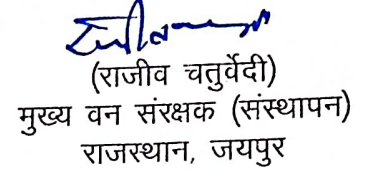 (राजीव चतुर्वेदी)
मुख्य वन संरक्षक (संस्थापन)
राजस्थान, जयपुर